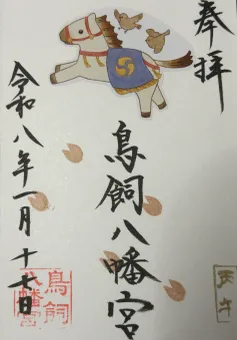 奉拝
鳥飼八幡宮
令和八年一月十七日
鳥飼
八幡宮
丙午